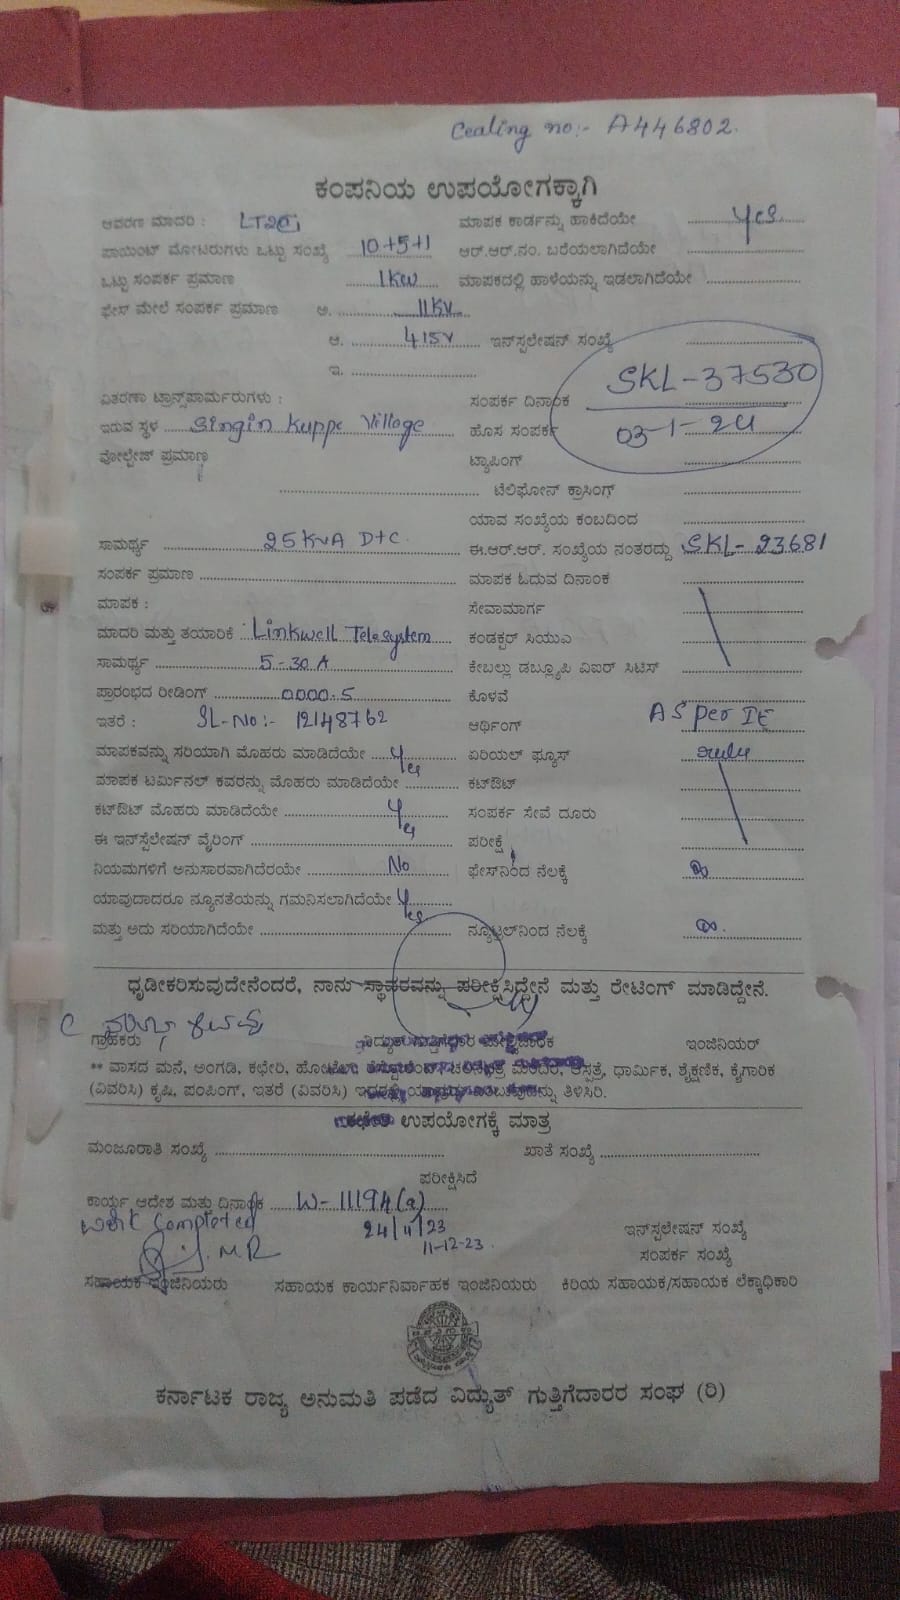 Cealing no:- A446802.
ಕಂಪನಿಯ ಉಪಯೋಗಕ್ಕಾಗಿ
ಆವರಣ ಮಾದರಿ : LT2 ಮಾಪಕ ಕಾರ್ಡನ್ನು ಹಾಕಿದೆಯೇ Yes
ಪಾಯಿಂಟ್ ಮೋಟರುಗಳು ಒಟ್ಟು ಸಂಖ್ಯೆ 10+5+1 ಆರ್.ಆರ್.ನಂ. ಬರೆಯಲಾಗಿದೆಯೇ
ಒಟ್ಟು ಸಂಪರ್ಕ ಪ್ರಮಾಣ 1KW ಮಾಪಕದಲ್ಲಿ ಹಾಳೆಯನ್ನು ಇಡಲಾಗಿದೆಯೇ
ಫೇಸ್ ಮೇಲೆ ಸಂಪರ್ಕ ಪ್ರಮಾಣ ಅ. 11KV
ಆ. 415V ಇನ್‌ಸ್ಪಲೇಷನ್ ಸಂಖ್ಯೆ
ಇ. SKL-37530
ವಿತರಣಾ ಟ್ರಾನ್ಸ್‌ಪಾರ್ಮರುಗಳು : ಸಂಪರ್ಕ ದಿನಾಂಕ
ಇರುವ ಸ್ಥಳ Singin Kuppe Village ಹೊಸ ಸಂಪರ್ಕ 03-1-24
ವೋಲ್ಟೇಜ್ ಪ್ರಮಾಣ ಟ್ಯಾಪಿಂಗ್
ಟೆಲಿಫೋನ್ ಕ್ರಾಸಿಂಗ್
ಯಾವ ಸಂಖ್ಯೆಯ ಕಂಬದಿಂದ
ಸಾಮರ್ಥ್ಯ 25KVA DTC. ಈ.ಆರ್.ಆರ್. ಸಂಖ್ಯೆಯ ನಂತರದ್ದು SKL-23681
ಸಂಪರ್ಕ ಪ್ರಮಾಣ ಮಾಪಕ ಓದುವ ದಿನಾಂಕ
ಮಾಪಕ : ಸೇವಾಮಾರ್ಗ
ಮಾದರಿ ಮತ್ತು ತಯಾರಿಕೆ Linkwell Telesystem ಕಂಡಕ್ಟರ್ ಸಿಯುಎ
ಸಾಮರ್ಥ್ಯ 5-30A ಕೇಬಲ್ಲು ಡಬ್ಲ್ಯೂಪಿ ವಿಐರ್ ಸಿಟಿಸ್
ಪ್ರಾರಂಭದ ರೀಡಿಂಗ್ 0000.5 ಕೊಳವೆ
ಇತರೆ : SL-No:- 12148762 ಆರ್ಥಿಂಗ್ AS per IE
ಮಾಪಕವನ್ನು ಸರಿಯಾಗಿ ಮೊಹರು ಮಾಡಿದೆಯೇ Yes ಏರಿಯಲ್ ಫ್ಯೂಸ್
ಮಾಪಕ ಟರ್ಮಿನಲ್ ಕವರನ್ನು ಮೊಹರು ಮಾಡಿದೆಯೇ ಕಟ್‌ಔಟ್
ಕಟ್‌ಔಟ್ ಮೊಹರು ಮಾಡಿದೆಯೇ Yes ಸಂಪರ್ಕ ಸೇವೆ ದೂರು
ಈ ಇನ್‌ಸ್ಪೆಲೇಷನ್ ವೈರಿಂಗ್ ಪರೀಕ್ಷೆ
ನಿಯಮಗಳಿಗೆ ಅನುಸಾರವಾಗಿದೆರಯೇ No ಫೇಸ್‌ನಿಂದ ನೆಲಕ್ಕೆ ∞
ಯಾವುದಾದರೂ ನ್ಯೂನತೆಯನ್ನು ಗಮನಿಸಲಾಗಿದೆಯೇ Yes
ಮತ್ತು ಅದು ಸರಿಯಾಗಿದೆಯೇ ನ್ಯೂಟ್ರಲ್‌ನಿಂದ ನೆಲಕ್ಕೆ ∞.
ಧೃಡೀಕರಿಸುವುದೇನೆಂದರೆ, ನಾನು ಸ್ಥಾಹರವನ್ನು ಪರೀಕ್ಷಿಸಿದ್ದೇನೆ ಮತ್ತು ರೇಟಿಂಗ್ ಮಾಡಿದ್ದೇನೆ.
ಗ್ರಾಹಕರು ಇಂಜಿನಿಯರ್
** ವಾಸದ ಮನೆ, ಅಂಗಡಿ, ಕಛೇರಿ, ಆಸ್ಪತ್ರೆ, ಧಾರ್ಮಿಕ, ಶೈಕ್ಷಣಿಕ, ಕೈಗಾರಿಕ
(ವಿವರಿಸಿ) ಕೃಷಿ, ಪಂಪಿಂಗ್, ಇತರೆ (ವಿವರಿಸಿ) ತಿಳಿಸಿರಿ.
ಕಛೇರಿ ಉಪಯೋಗಕ್ಕೆ ಮಾತ್ರ
ಮಂಜೂರಾತಿ ಸಂಖ್ಯೆ ಖಾತೆ ಸಂಖ್ಯೆ
ಪರೀಕ್ಷಿಸಿದೆ
ಕಾರ್ಯ ಆದೇಶ ಮತ್ತು ದಿನಾಂಕ W-11194(a)
Work Completed 24/11/23 ಇನ್‌ಸ್ಪಲೇಷನ್ ಸಂಖ್ಯೆ
11-12-23. ಸಂಪರ್ಕ ಸಂಖ್ಯೆ
ಸಹಾಯಕ ಇಂಜಿನಿಯರು ಸಹಾಯಕ ಕಾರ್ಯನಿರ್ವಾಹಕ ಇಂಜಿನಿಯರು ಕಿರಿಯ ಸಹಾಯಕ/ಸಹಾಯಕ ಲೆಕ್ಕಾಧಿಕಾರಿ
ಕರ್ನಾಟಕ ರಾಜ್ಯ ಅನುಮತಿ ಪಡೆದ ವಿದ್ಯುತ್ ಗುತ್ತಿಗೆದಾರರ ಸಂಘ (ರಿ)